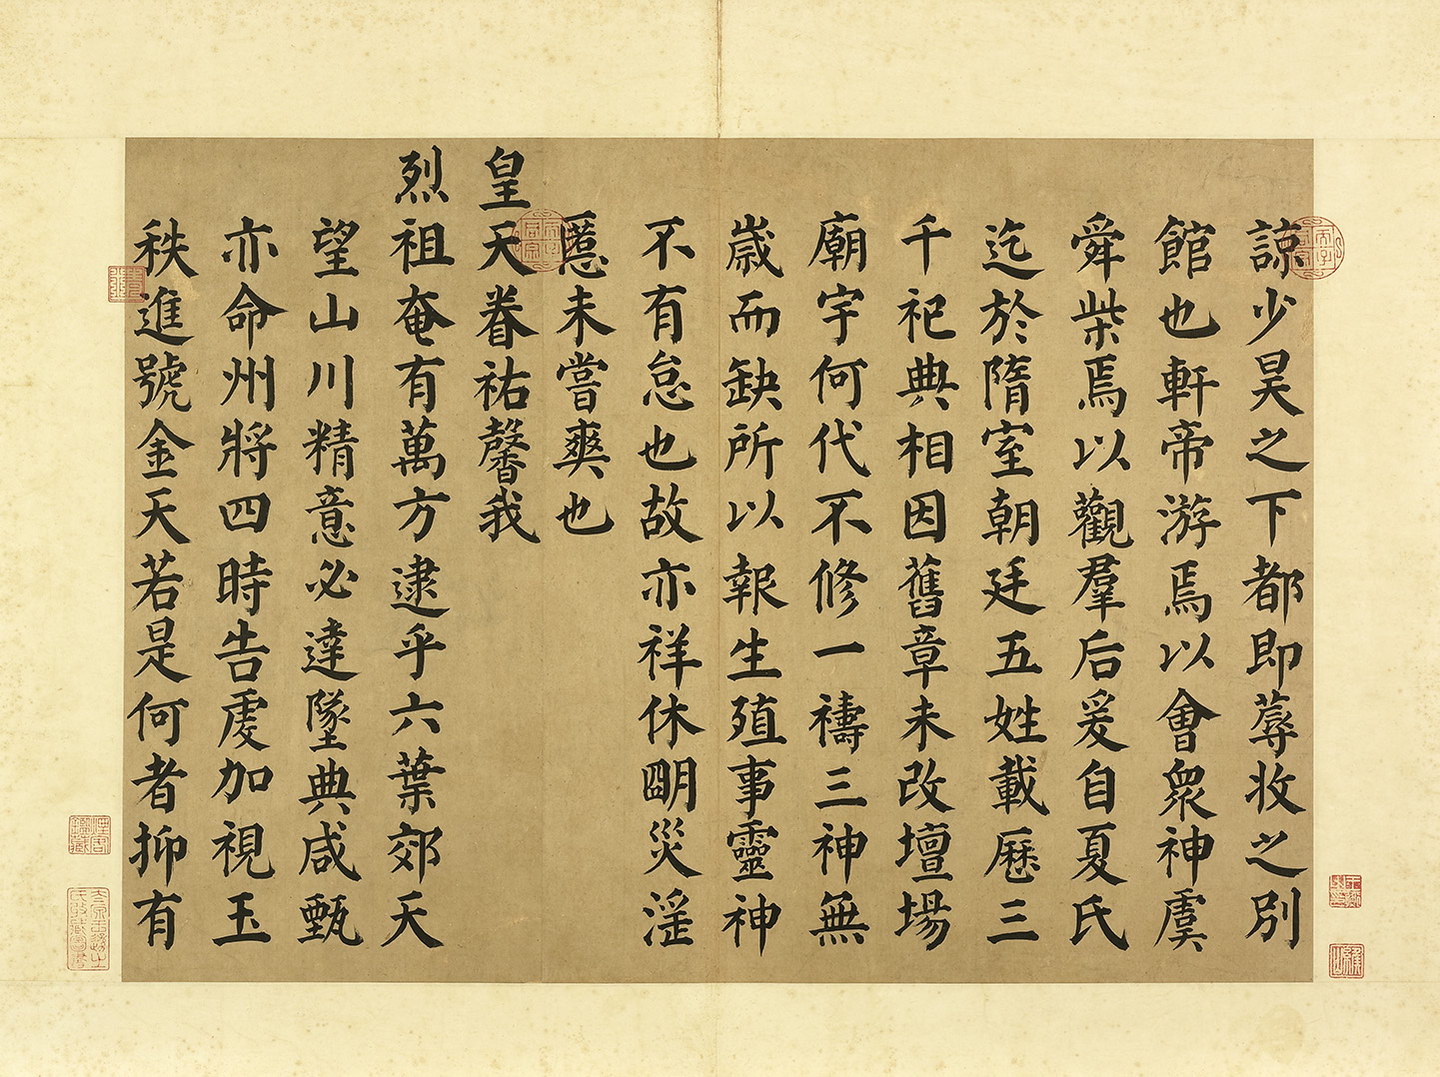 諒少昊之下都即蓐收之別
館也軒帝游焉以會眾神虞
舜柴焉以觀羣后爰自夏氏
迄於隋室朝廷五姓載歷三
千祀典相因舊章未改壇場
廟宇何代不修一禱三神無
歲而缺所以報生殖事靈神
不有怠也故亦祥休朙災淫
慝未嘗爽也
皇天眷祐馨我
烈祖奄有萬方逮乎六葉郊天
望山川精意必達墜典咸甄
亦命州將四時告虔加視玉
秩進號金天若是何者抑有